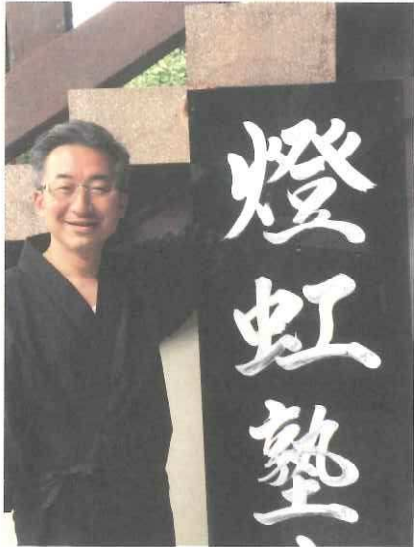 燈虹塾